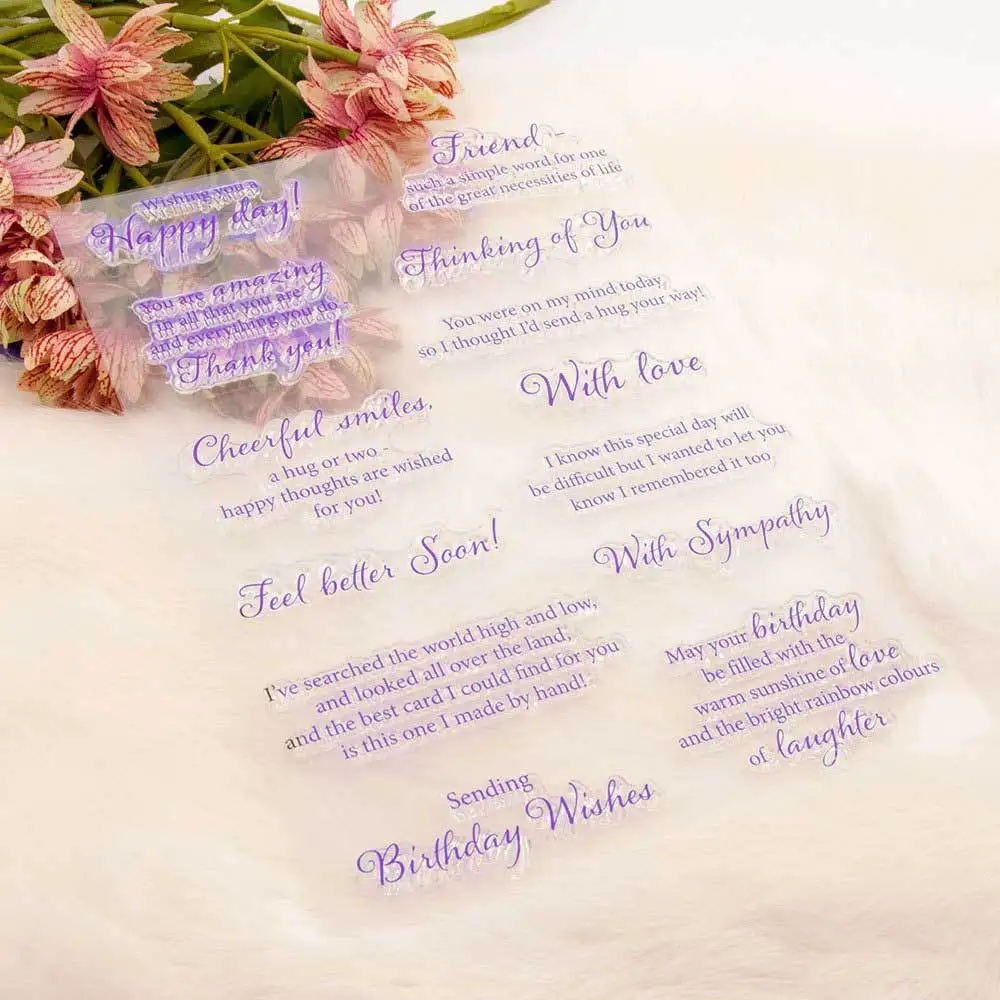 Wishing you a
Happy day!
You are amazing
in all that you are
and everything you do.
Thank you!
Cheerful smiles,
a hug or two -
happy thoughts are wished
for you!
Feel better Soon!
I've searched the world high and low,
and looked all over the land,
and the best card I could find for you
is this one I made by hand!
Sending
Birthday Wishes
Friend -
such a simple word for one
of the great necessities of life
Thinking of You
You were on my mind today,
so I thought I'd send a hug your way!
With love
I know this special day will
be difficult but I wanted to let you
know I remembered it too
With Sympathy
May your birthday
be filled with the
warm sunshine of love
and the bright rainbow colours
of laughter